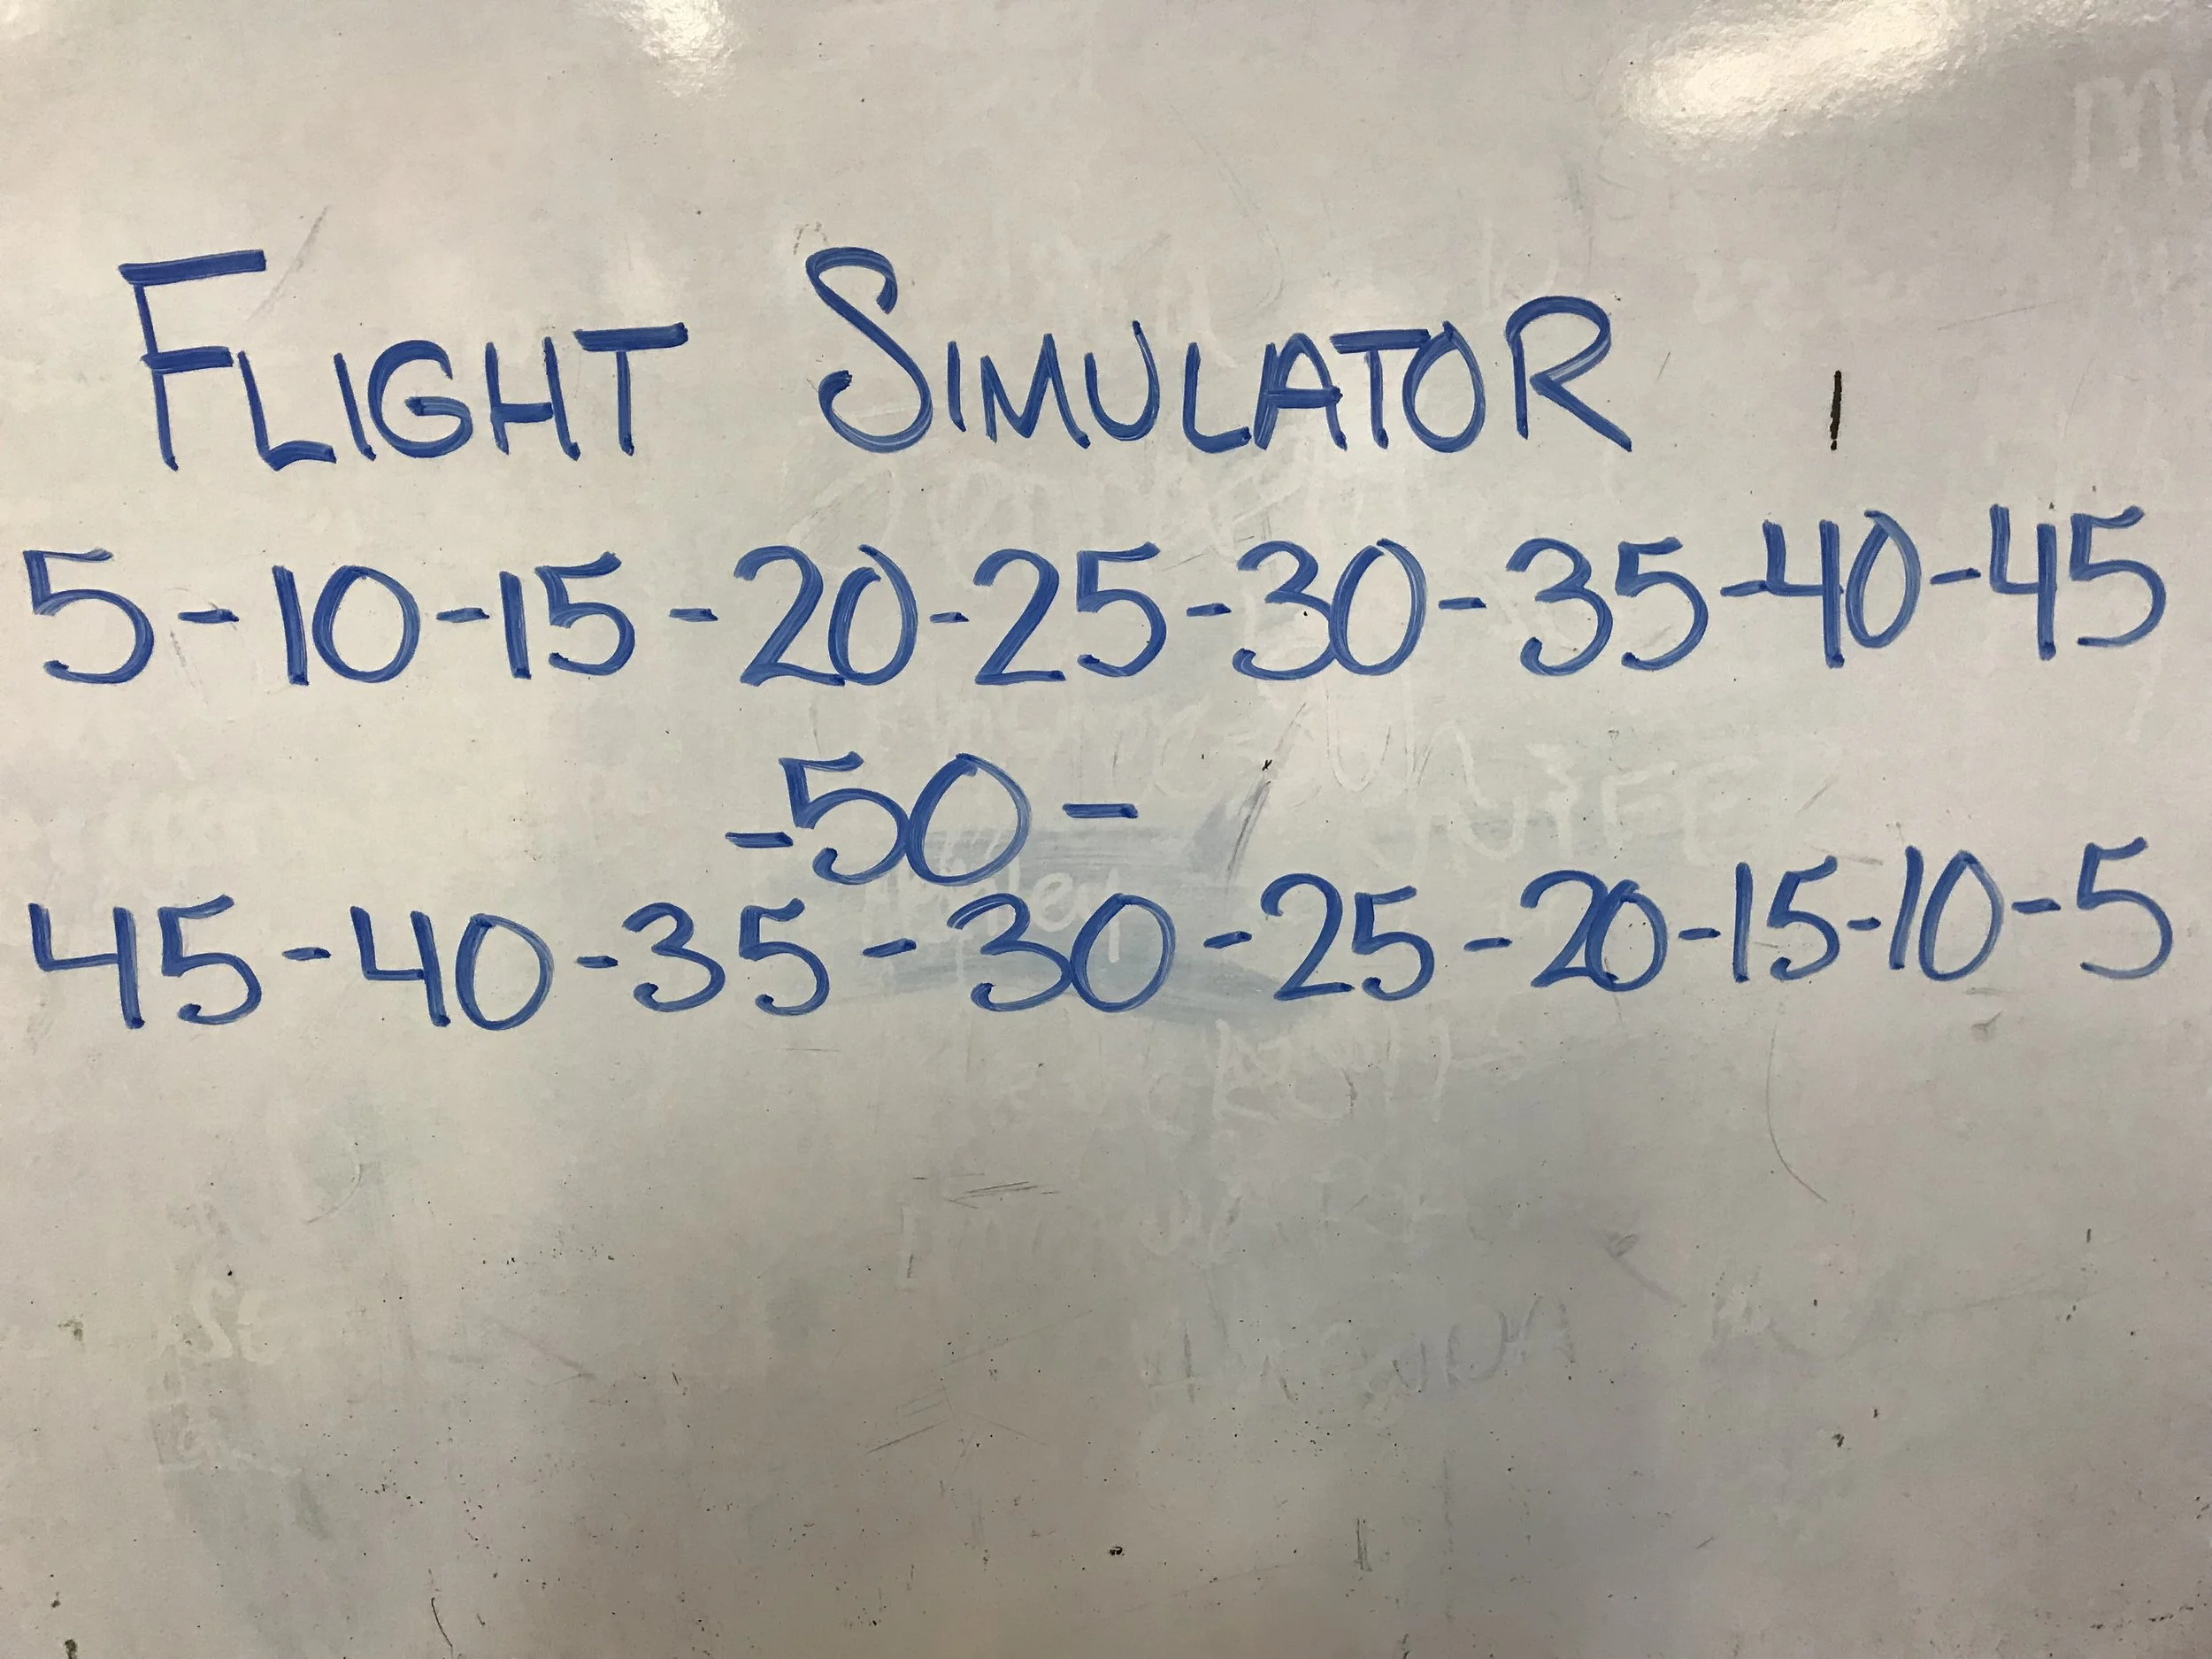 FLIGHT SIMULATOR
5-10-15-20-25-30-35-40-45
-50-
45-40-35-30-25-20-15-10-5